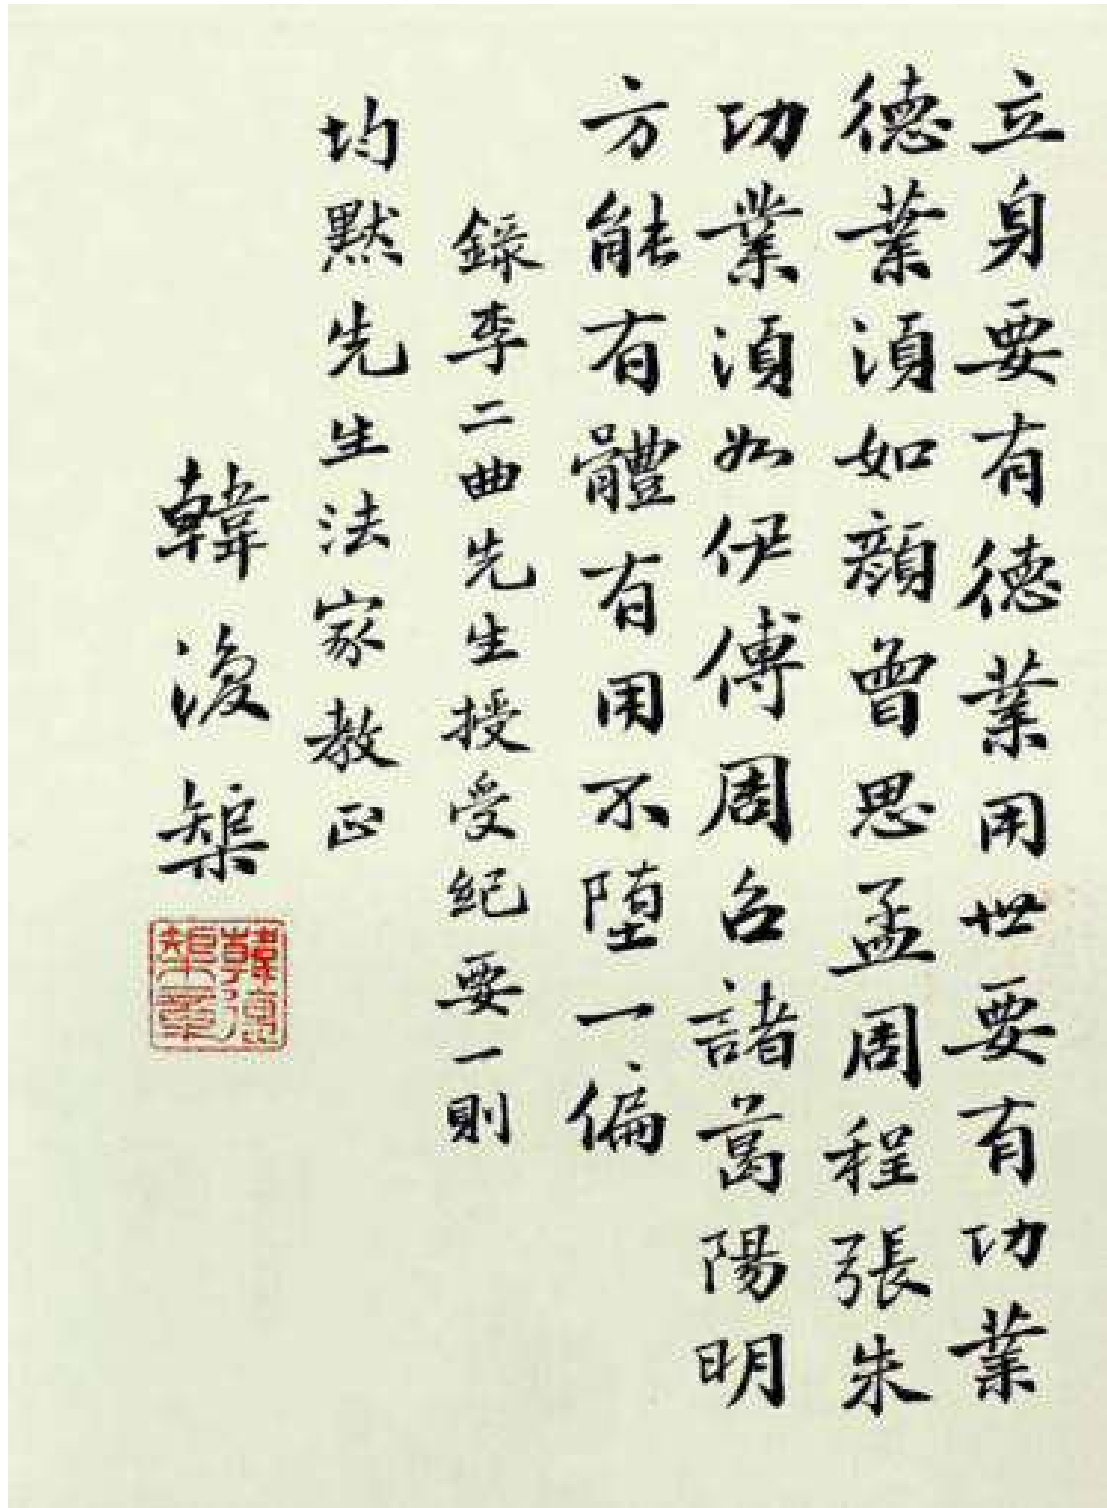 立身要有德業用世要有功業
德業須如顔曾思孟周程張朱
功業須如伊傅周召諸葛陽明
方能有體有用不堕一偏
錄李二曲先生授受紀要一則
均默先生法家教正
韓復榘